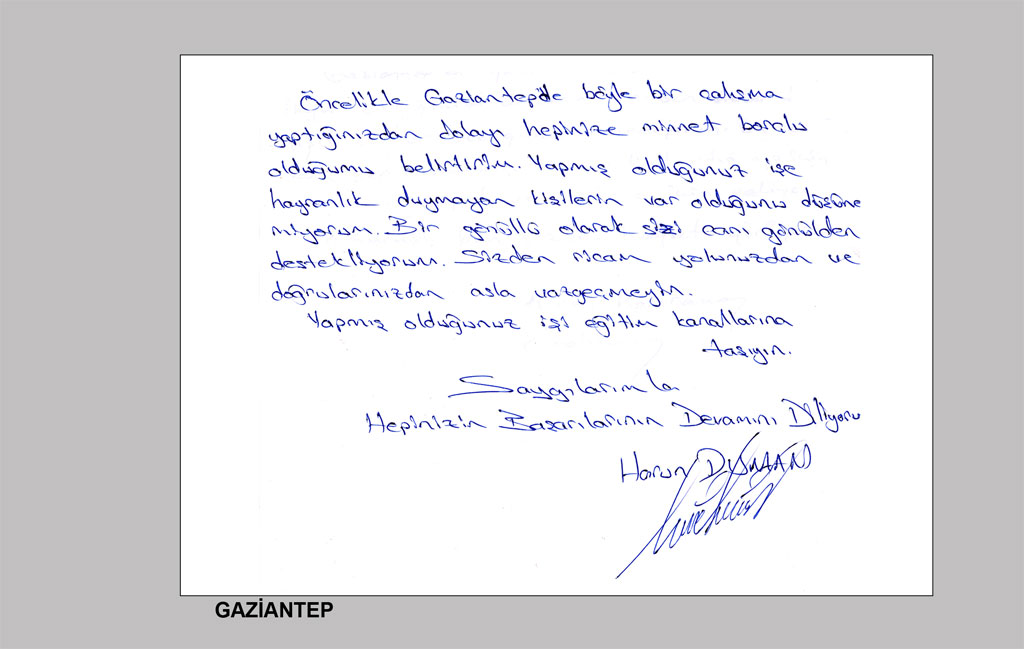 Öncelikle Gaziantep'de böyle bir çalışma
yaptığınızdan dolayı hepinize minnet borçlu
olduğumu belirtirim. Yapmış olduğunuz işe
hayranlık duymayan kişilerin var olduğunu düşüne
miyorum. Bir gönüllü olarak sizi canı gönülden
destekliyorum. Sizden ricam yolunuzdan ve
doğrularınızdan asla vazgeçmeyin.
Yapmış olduğunuz işi eğitim kanallarına
taşıyın.
Saygılarımla
Hepinizin Başarılarının Devamını Diliyoru
Harun
GAZİANTEP